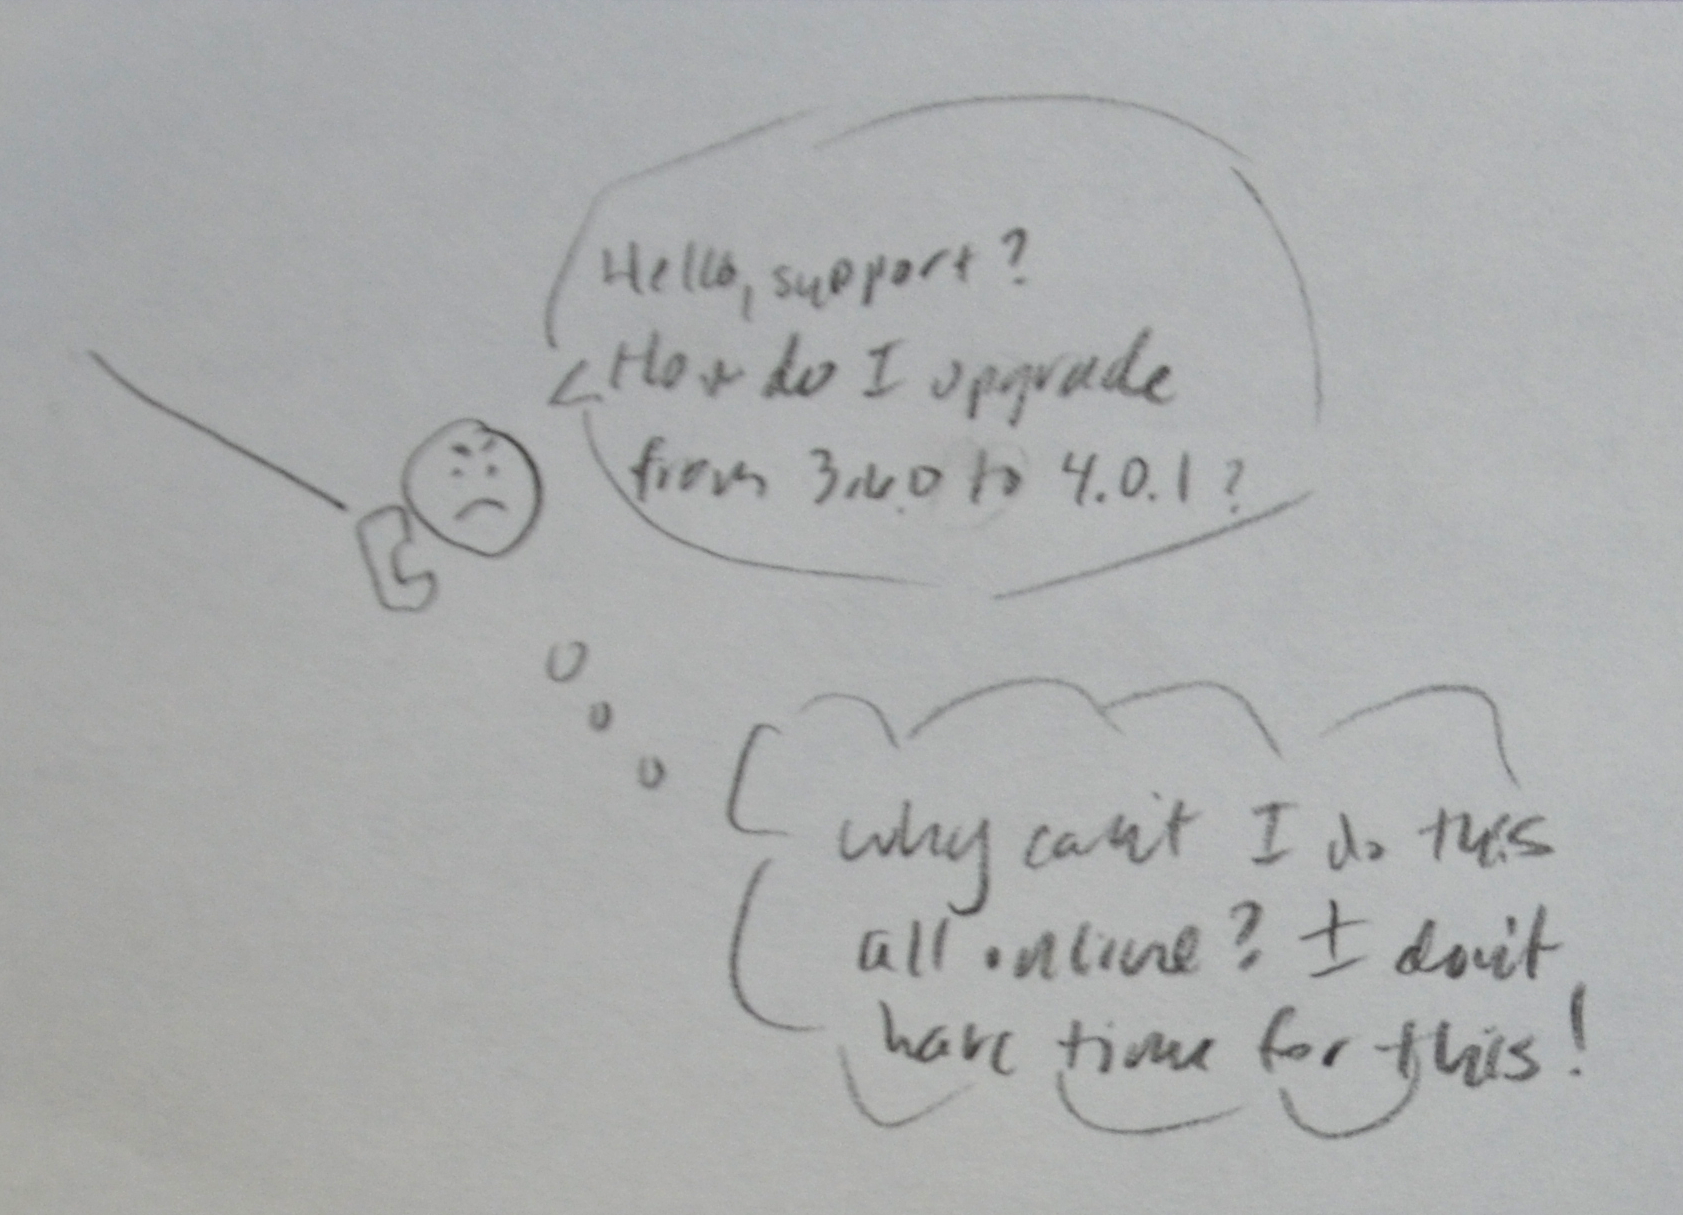 Hello, support?
How do I upgrade
from 3.6.0 to 4.0.1?
why can't I do this
all online? I don't
have time for this!